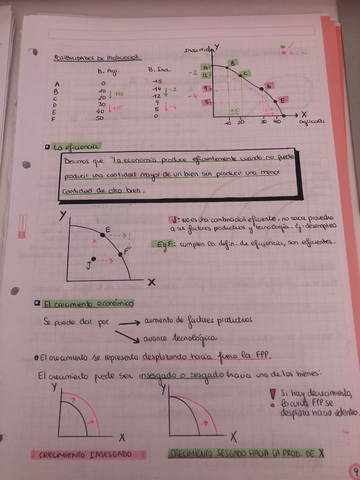 POSIBILIDADES DE PRODUCCIÓN
B. Agr.
B. Ind.
A 0 15
B 10 14
C 20 12
D 30 9
E 40 5
F 50 0
+10
-2
+10
-4
Industria Y
-2
14 B
12 C
-4
9 D
5 E
10 20 30 40 X
agrícola
La eficiencia
Decimos que la economía produce eficientemente cuando no puede
producir una cantidad mayor de un bien sin producir una menor
cantidad de otro bien.
Y
E
F
J
X
J: No es una combinación eficiente, no saca provecho
a sus factores productivos y tecnología. Ej: desempleo
E y F: cumplen la defin. de eficiencia, son eficientes.
El crecimiento económico
Se puede dar por → aumento de factores productivos
→ avance tecnológico
El crecimiento se representa desplazando hacia fuera la FPP.
El crecimiento puede ser insesgado o sesgado hacia uno de los bienes:
Y
X
Y
X
! Si hay decrecimiento,
la curva FPP se
desplaza hacia adentro.
CRECIMIENTO INSESGADO
CRECIMIENTO SESGADO HACIA LA PROD. DE X
9